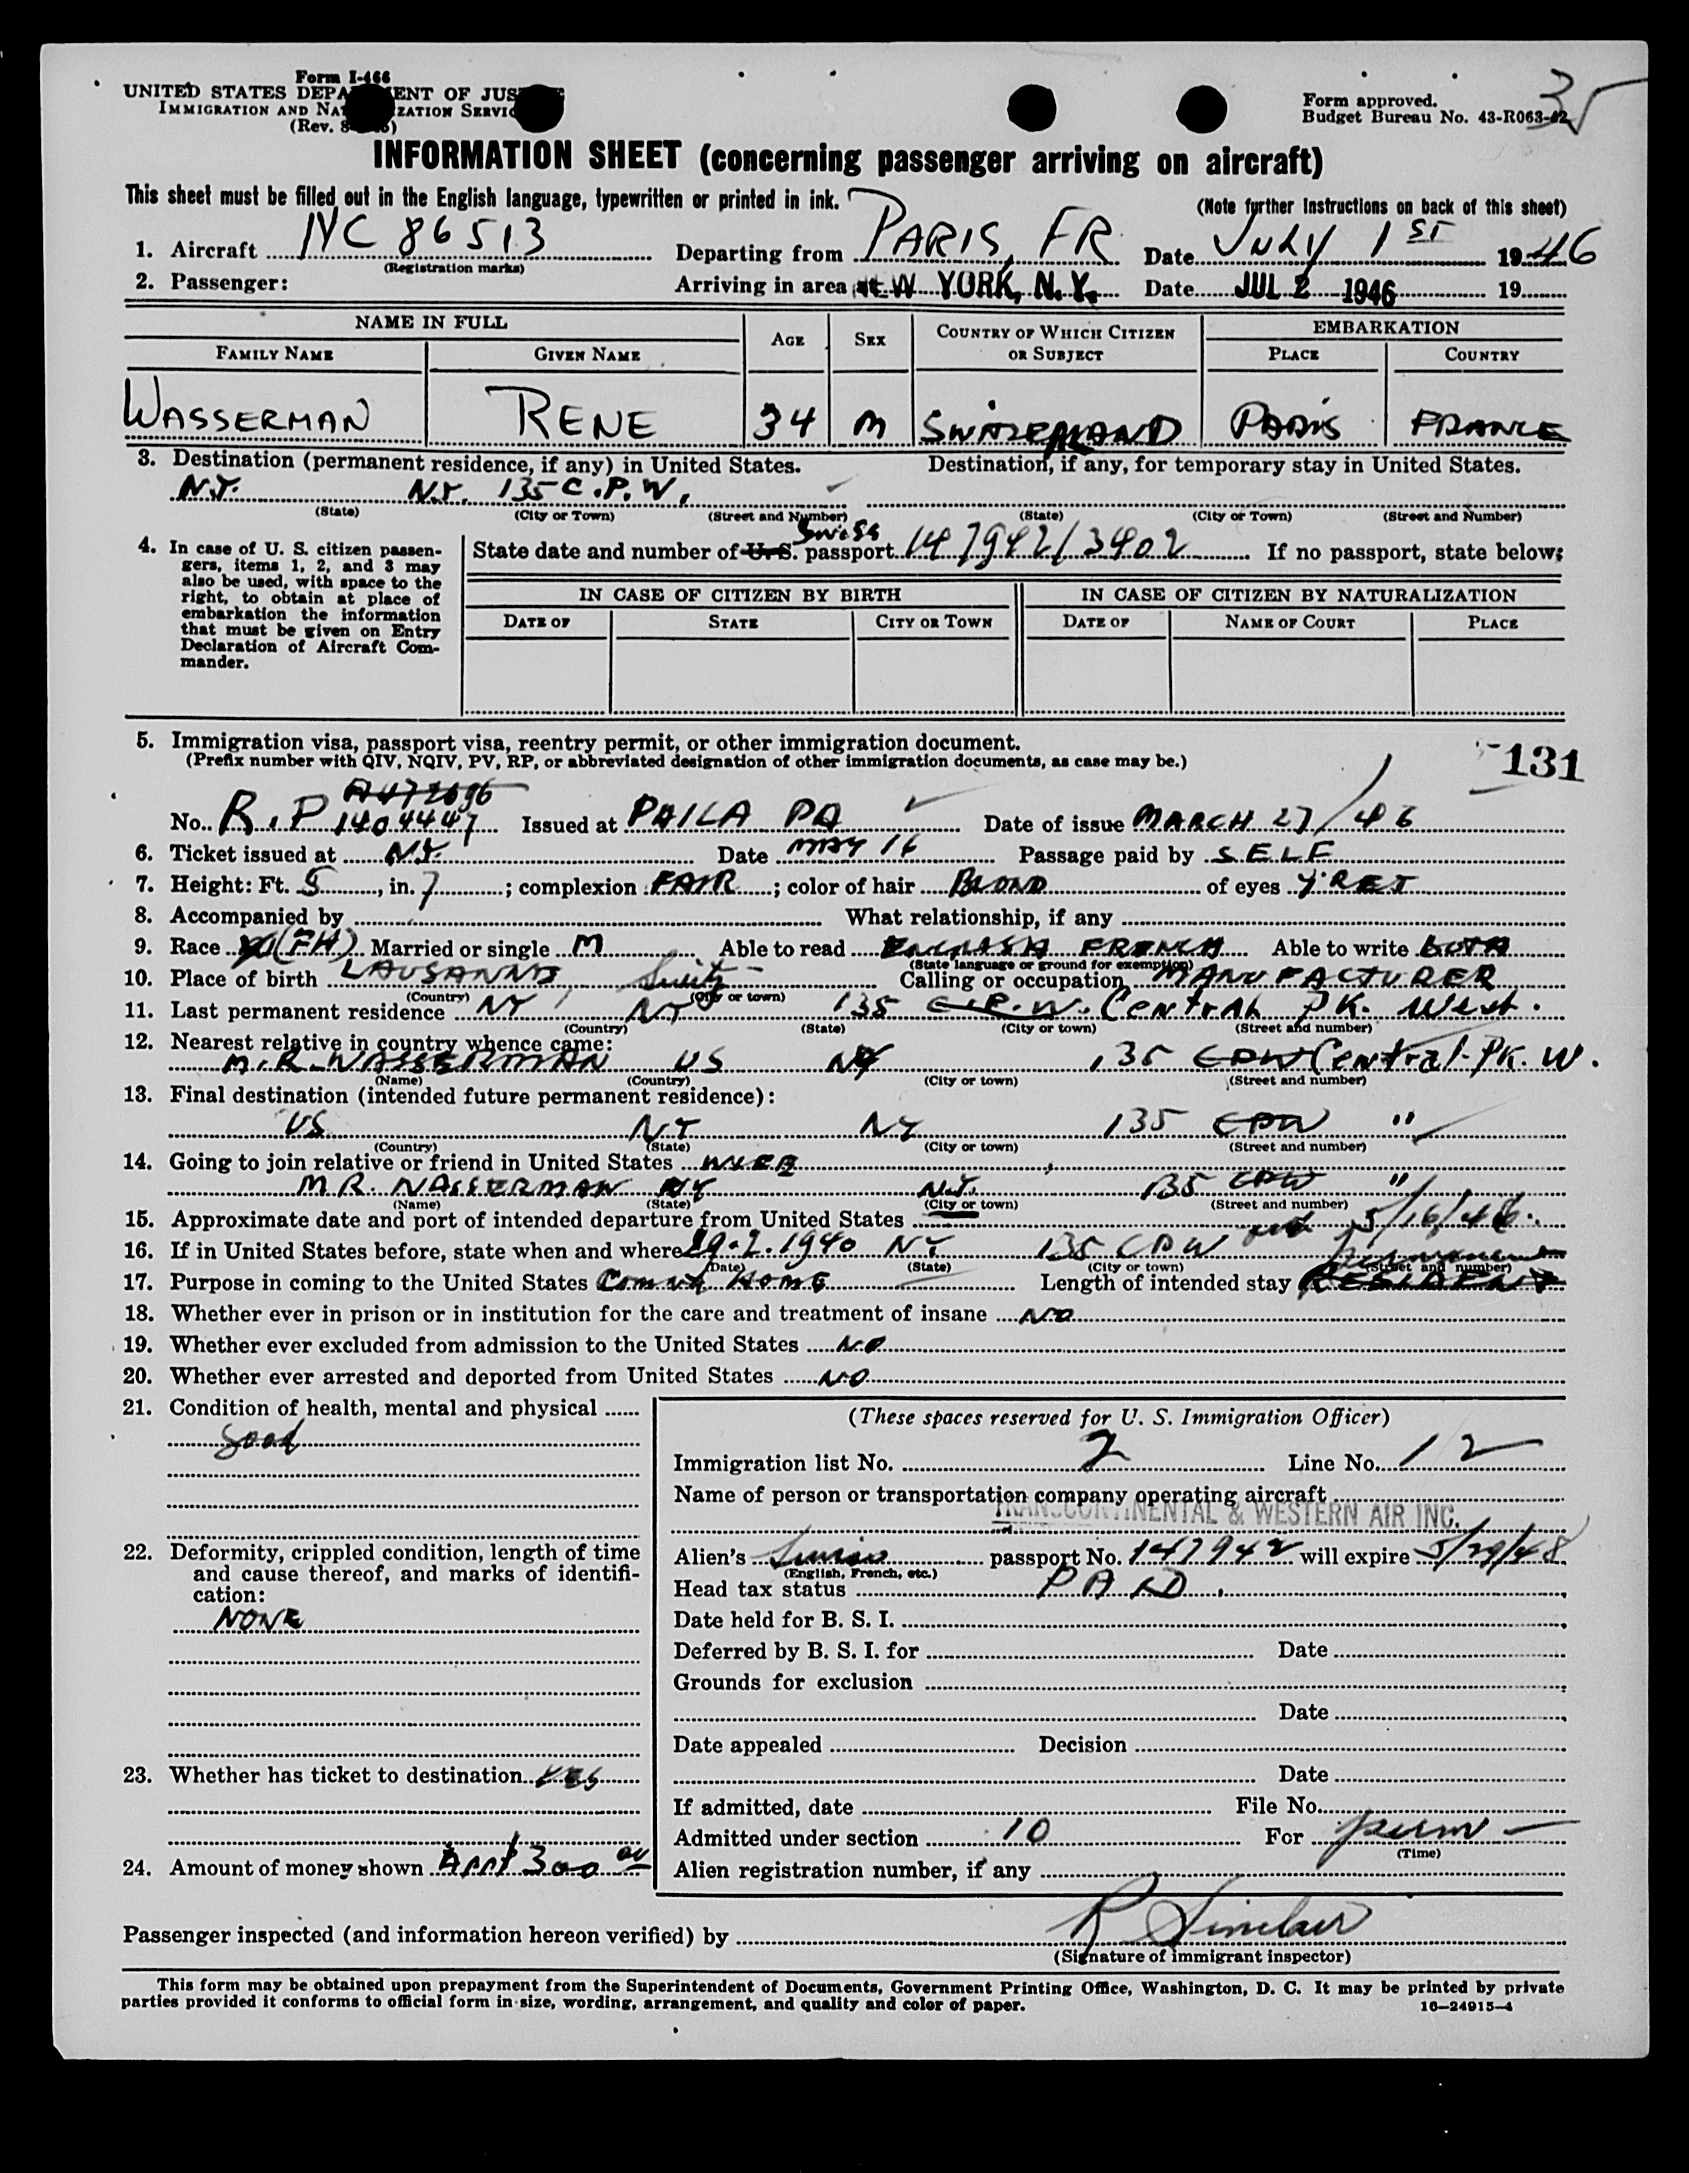 Form I-466
UNITED STATES DEPARTMENT OF JUSTICE
IMMIGRATION AND NATURALIZATION SERVICE
(Rev.
Form approved.
Budget Bureau No. 43-R063-42
35
INFORMATION SHEET (concerning passenger arriving on aircraft)
This sheet must be filled out in the English language, typewritten or printed in ink.
(Note further Instructions on back of this sheet)
1. Aircraft NC 86513 Departing from PARIS, FR Date JULY 1ST 1946
(Registration marks)
2. Passenger: Arriving in area at W YORK, N. Y. Date JUL 2 1946 19
NAME IN FULL AGE SEX COUNTRY OF WHICH CITIZEN OR SUBJECT EMBARKATION
FAMILY NAME GIVEN NAME PLACE COUNTRY
WASSERMAN RENE 34 M SWITZERLAND PARIS FRANCE
3. Destination (permanent residence, if any) in United States. Destination, if any, for temporary stay in United States.
N.Y. N.Y. 135 C.P.W.
(State) (City or Town) (Street and Number) (State) (City or Town) (Street and Number)
4. In case of U. S. citizen passengers, items 1, 2, and 3 may also be used, with space to the right, to obtain at place of embarkation the information that must be given on Entry Declaration of Aircraft Commander.
Swiss
State date and number of U. S. passport 147942/3402 If no passport, state below:
IN CASE OF CITIZEN BY BIRTH IN CASE OF CITIZEN BY NATURALIZATION
DATE OF STATE CITY OR TOWN DATE OF NAME OF COURT PLACE
5. Immigration visa, passport visa, reentry permit, or other immigration document.
(Prefix number with QIV, NQIV, PV, RP, or abbreviated designation of other immigration documents, as case may be.)
131
No. R.P 1404447 Issued at PHILA PA Date of issue MARCH 27/46
6. Ticket issued at N.Y. Date MAY 16 Passage paid by SELF
7. Height: Ft. 5, in. 7; complexion FAIR; color of hair BLOND of eyes
8. Accompanied by What relationship, if any
9. Race (FH) Married or single M Able to read ENGLISH FRENCH Able to write BOTH
(State language or ground for exemption)
10. Place of birth LAUSANNE Switz Calling or occupation MANUFACTURER
(Country) (City or town)
11. Last permanent residence NY NY 135 C.P.W. Central PK. West.
(Country) (State) (City or town) (Street and number)
12. Nearest relative in country whence came:
M.R. WASSERMAN US NY 135 CPW Central PK. W.
(Name) (Country) (City or town) (Street and number)
13. Final destination (intended future permanent residence):
US NY NY 135 CPW "
(Country) (State) (City or town) (Street and number)
14. Going to join relative or friend in United States
MR. WASSERMAN NY N.Y. 135 CPW "
(Name) (State) (City or town) (Street and number)
15. Approximate date and port of intended departure from United States 5/16/46.
16. If in United States before, state when and where 29.2.1940 NY 135 CPW
(Date) (State) (City or town) (Street and number)
17. Purpose in coming to the United States COMING HOME Length of intended stay permanent RESIDENT
18. Whether ever in prison or in institution for the care and treatment of insane NO
19. Whether ever excluded from admission to the United States NO
20. Whether ever arrested and deported from United States NO
21. Condition of health, mental and physical
Good
22. Deformity, crippled condition, length of time and cause thereof, and marks of identification:
NONE
23. Whether has ticket to destination YES
24. Amount of money shown 300 00
(These spaces reserved for U. S. Immigration Officer)
Immigration list No. 2 Line No. 12
Name of person or transportation company operating aircraft
TRANSCONTINENTAL & WESTERN AIR INC.
Alien's Swiss passport No. 147942 will expire 5/29/48
(English, French, etc.)
Head tax status PAID.
Date held for B. S. I.
Deferred by B. S. I. for Date
Grounds for exclusion
Date
Date appealed Decision
Date
If admitted, date File No.
Admitted under section 10 For perm
(Time)
Alien registration number, if any
Passenger inspected (and information hereon verified) by R Sinclair
(Signature of immigrant inspector)
This form may be obtained upon prepayment from the Superintendent of Documents, Government Printing Office, Washington, D. C. It may be printed by private
parties provided it conforms to official form in size, wording, arrangement, and quality and color of paper.
16—24915-4